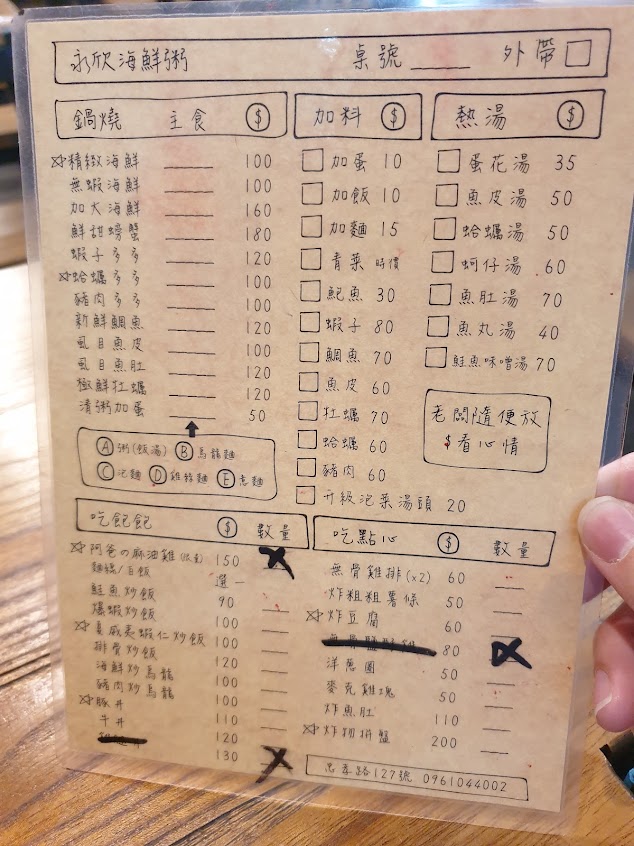 永欣海鮮粥 桌號____ 外帶□
鍋燒 主食 $
☆精緻海鮮 ____ 100
無蝦海鮮 ____ 100
加大海鮮 ____ 160
鮮甜螃蟹 ____ 180
蝦子多多 ____ 120
☆蛤蠣多多 ____ 100
豬肉多多 ____ 100
新鮮鯛魚 ____ 120
虱目魚皮 ____ 100
虱目魚肚 ____ 120
極鮮牡蠣 ____ 120
清粥加蛋 ____ 50
Ⓐ粥(飯湯) Ⓑ烏龍麵
Ⓒ泡麵 Ⓓ雞絲麵 Ⓔ意麵
加料 $
□加蛋 10
□加飯 10
□加麵 15
□青菜 時價
□鮑魚 30
□蝦子 80
□鯛魚 70
□魚皮 60
□牡蠣 70
□蛤蠣 60
□豬肉 60
□升級泡菜湯頭 20
熱湯 $
□蛋花湯 35
□魚皮湯 50
□蛤蠣湯 50
□蚵仔湯 60
□魚肚湯 70
□魚丸湯 40
□鮭魚味噌湯 70
老闆隨便放
$看心情
吃飽飽 $ 數量
☆阿爸の麻油雞(限量) 150
麵線/白飯 選一
鮭魚炒飯 90
爆蝦炒飯 100
☆夏威夷蝦仁炒飯 100
排骨炒飯 120
海鮮炒烏龍 100
豬肉炒烏龍 100
☆豚丼 110
牛丼 120
130
吃點心 $ 數量
無骨雞排(x2) 60
炸粗粗薯條 50
☆炸豆腐 60
80
洋蔥圈 50
麥克雞塊 50
炸魚肚 110
☆炸物拼盤 200
忠孝路127號 0961044002